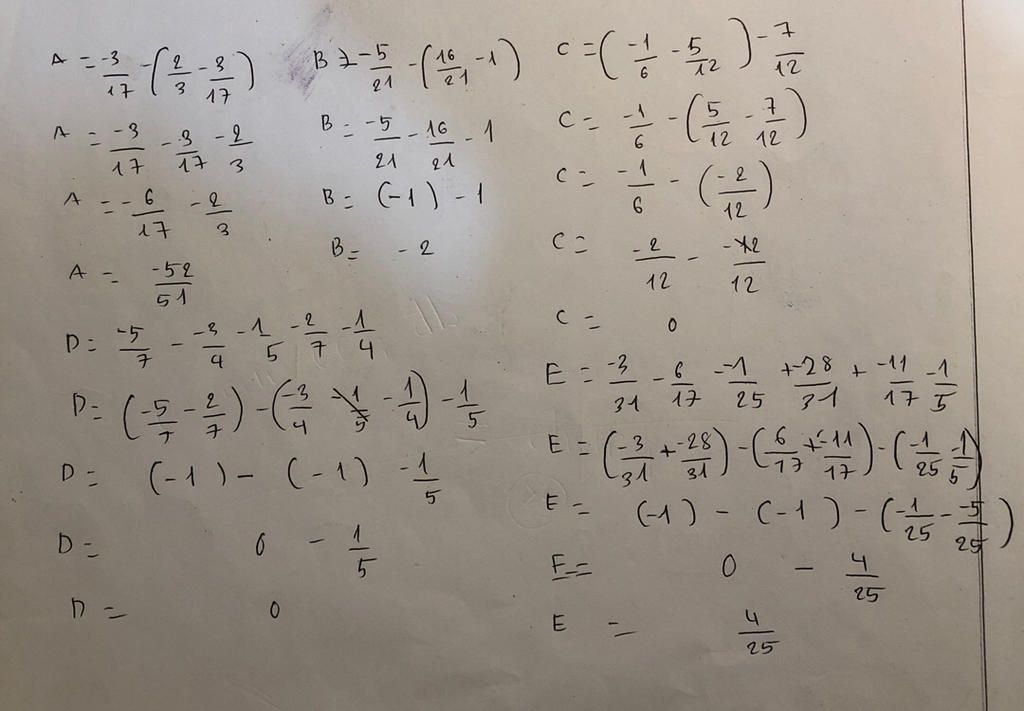 A = -3/17 - (2/3 - 3/17)
A = -3/17 - 3/17 - 2/3
A = - 6/17 - 2/3
A = -52/51
B = -5/21 - (16/21 - 1)
B = -5/21 - 16/21 - 1
B = (-1) - 1
B = - 2
C = (-1/6 - 5/12) - 7/12
C = -1/6 - (5/12 - 7/12)
C = -1/6 - (-2/12)
C = -2/12 - -2/12
C = 0
D = -5/7 - -3/4 - 1/5 - 2/7 - 1/4
D = (-5/7 - 2/7) - (-3/4 - 1/4) - 1/5
D = (-1) - (-1) - 1/5
D = 0 - 1/5
D = 0
E = -3/31 - 6/17 - -1/25 + -28/31 + -11/17 - 1/5
E = (-3/31 + -28/31) - (6/17 + -11/17) - (-1/25 - 1/5)
E = (-1) - (-1) - (-1/25 - -5/25)
E = 0 - 4/25
E = 4/25